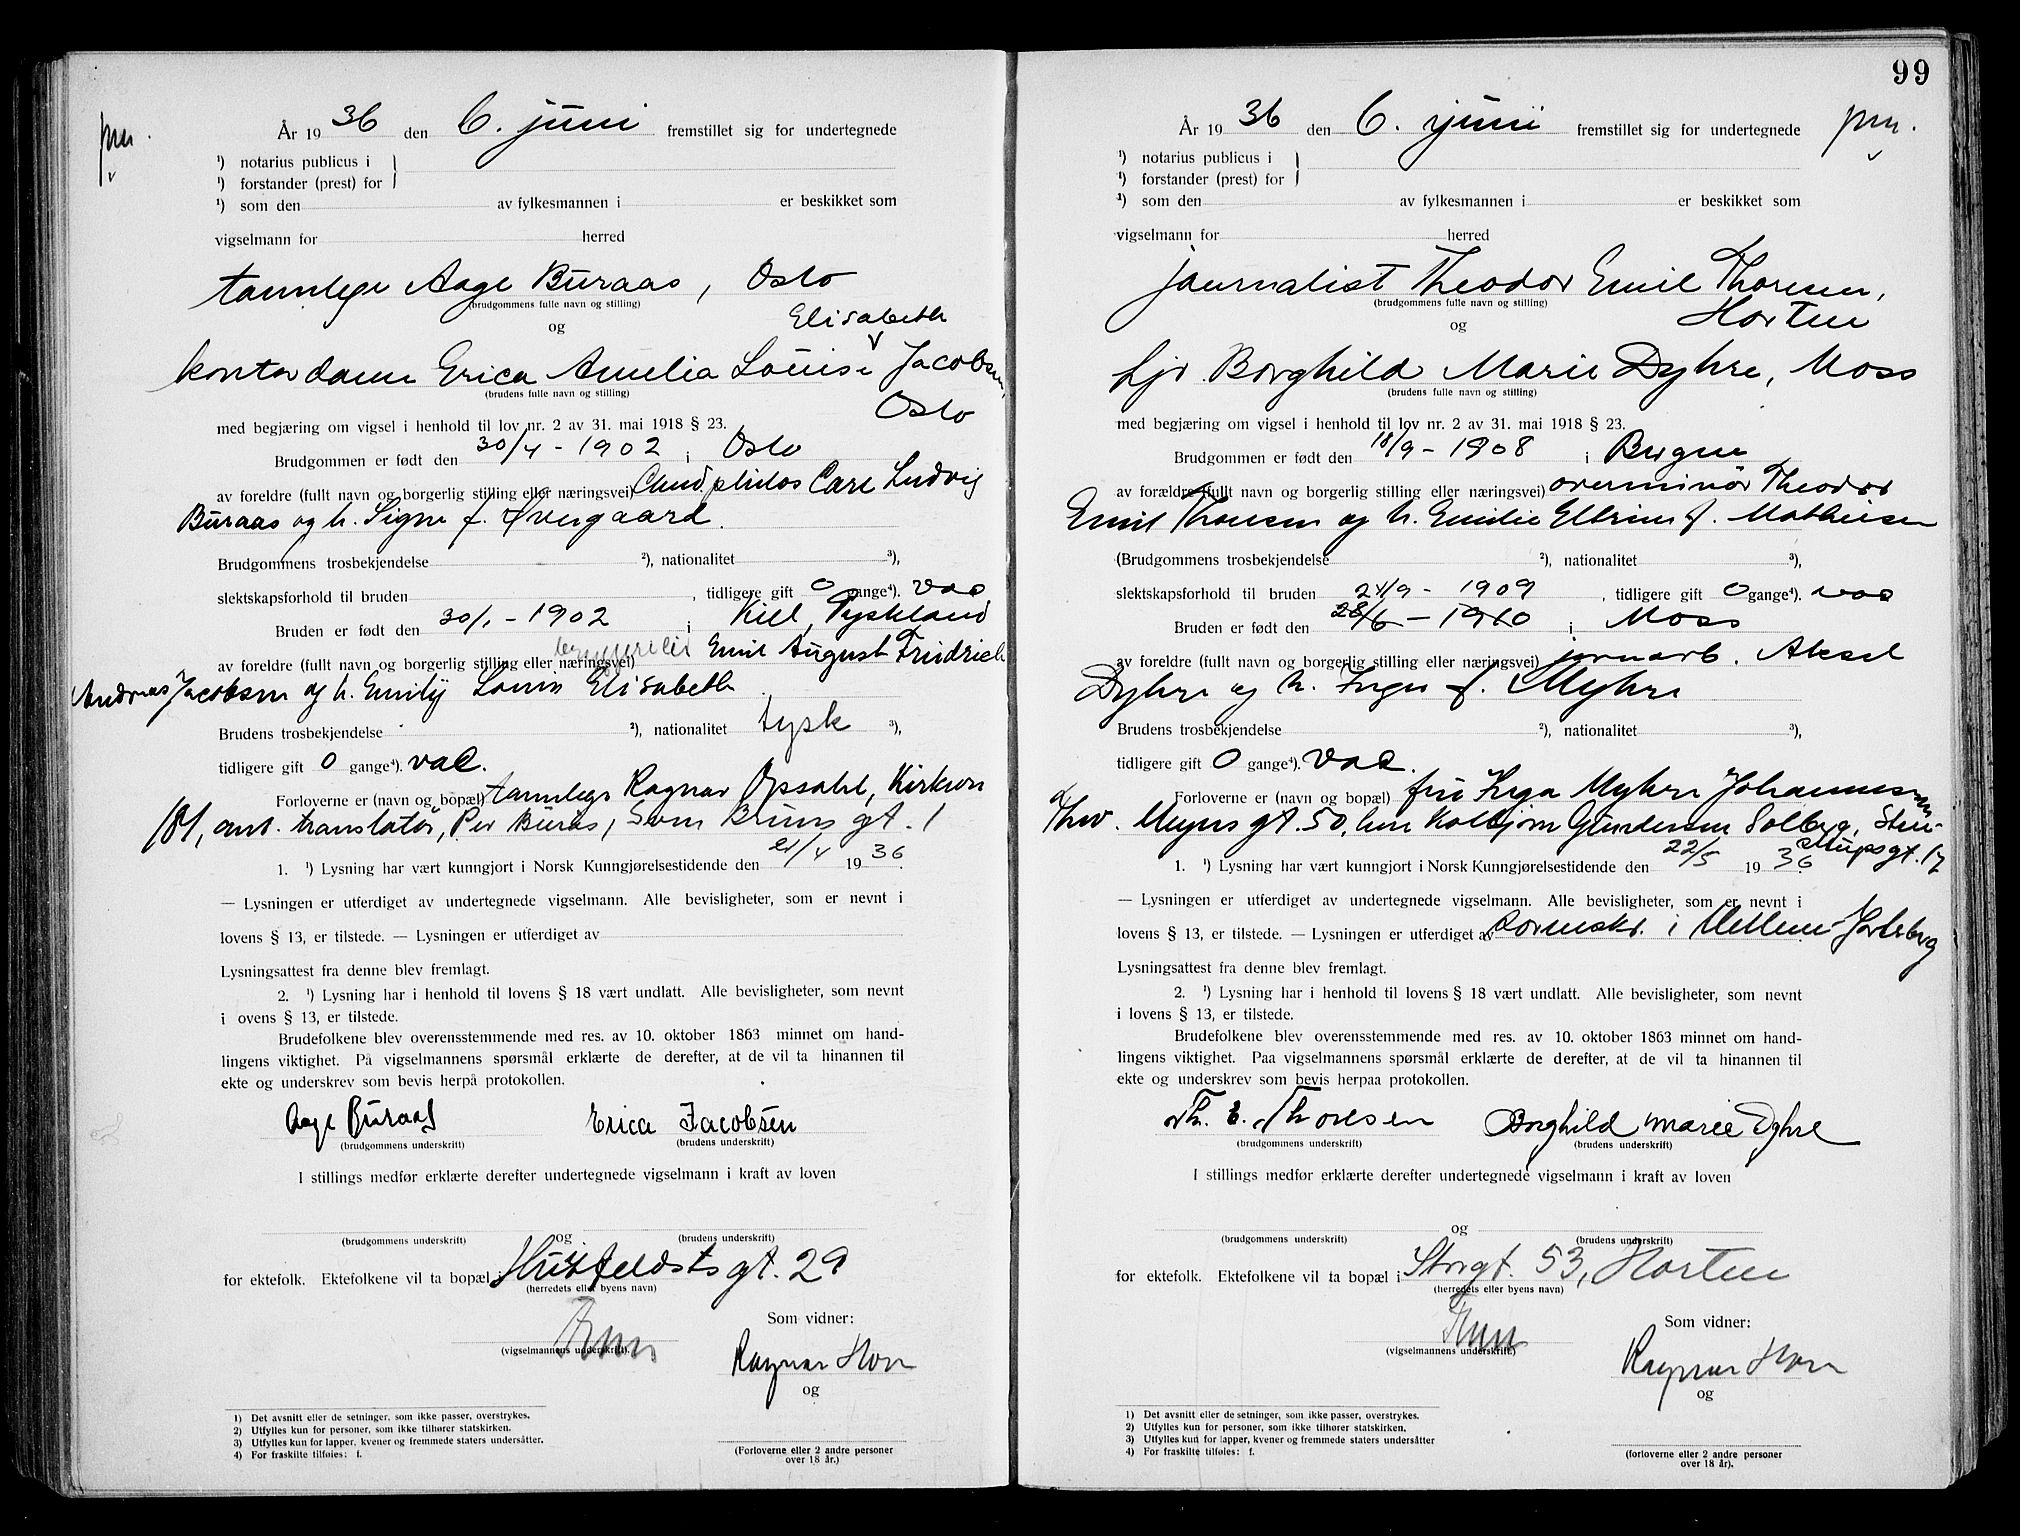 År 1936 den 6. juni fremstillet sig for undertegnede
¹) notarius publicus i
¹) forstander (prest) for
¹) som den av fylkesmannen i er beskikket som
vigselmann for herred
tannlege Aage Buraas, Oslo
(brudgommens fulle navn og stilling)
og
Elisabeth
kontordame Erica Amelia Louise Jacobsen,
(brudens fulle navn og stilling)
Oslo
med begjæring om vigsel i henhold til lov nr. 2 av 31. mai 1918 § 23.
Brudgommen er født den 30/4 - 1902 i Oslo
av foreldre (fullt navn og borgerlig stilling eller næringsvei) Cand philos Carl Ludvig
Buraas og h. Signe f. Øvergaard.
Brudgommens trosbekjendelse ²), nationalitet ³),
slektskapsforhold til bruden , tidligere gift 0 gange⁴). vac
Bruden er født den 30/1 - 1902 i Kiel, Tyskland
av foreldre (fullt navn og borgerlig stilling eller næringsvei) Emil August Fridrich
Andreas Jacobsen og h. Emily Louis Elisabeth
Brudens trosbekjendelse ²), nationalitet tysk ³),
tidligere gift 0 gange⁴). vac.
Forloverne er (navn og bopæl) tannlege Ragnar Opsahl, Kirkevn
101, aut. translatør, Per Buras, Sven Bruns gt. 1
1. ¹) Lysning har vært kunngjort i Norsk Kunngjørelsestidende den 21/4 1936.
— Lysningen er utferdiget av undertegnede vigselmann. Alle bevisligheter, som er nevnt i
lovens § 13, er tilstede. — Lysningen er utferdiget av
Lysningsattest fra denne blev fremlagt.
2. ¹) Lysning har i henhold til lovens § 18 vært undlatt. Alle bevisligheter, som nevnt
i ovens § 13, er tilstede.
Brudefolkene blev overensstemmende med res. av 10. oktober 1863 minnet om hand-
lingens viktighet. På vigselmannens spørsmål erklærte de derefter, at de vil ta hinannen til
ekte og underskrev som bevis herpå protokollen.
Aage Buraas Erica Jacobsen
(brudgommens underskrift) (brudens underskrift)
I stillings medfør erklærte derefter undertegnede vigselmann i kraft av loven
og
(brudgommens underskrift) (brudens underskrift)
for ektefolk. Ektefolkene vil ta bopæl i Huitfeldts gt. 29
(herredets eller byens navn)
Som vidner:
(vigselmannens underskrift).
Ragnar Horn
og
1) Det avsnitt eller de setninger, som ikke passer, overstrykes.
2) Utfylles kun for personer, som ikke tilhører statskirken.
3) Utfylles kun for lapper, kvener og fremmede staters undersåtter.
4) For fraskilte tilføies: f.
(Forloverne eller 2 andre personer
over 18 år.)
99
År 1936 den 6. juni fremstillet sig for undertegnede
¹) notarius publicus i
¹) forstander (prest) for
¹) som den av fylkesmannen i er beskikket som
vigselmann for herred
journalist Theodor Emil Thoresen,
(brudgommens fulle navn og stilling)
Horten
og
frk. Borghild Marie Dyhre, Moss
(brudens fulle navn og stilling)
med begjæring om vigsel i henhold til lov nr. 2 av 31. mai 1918 § 23.
Brudgommen er født den 18/9 - 1908 i Bergen
av forældre (fullt navn og borgerlig stilling eller næringsvei) overminør Theodor
Emil Thoresen og h. Emilie Eltrine f. Mathiesen
(Brudgommens trosbekjendelse ²), nationalitet ³),
slektskapsforhold til bruden 24/9 - 1909 , tidligere gift 0 gange⁴). vac
Bruden er født den 28/6 - 1910 i Moss
av foreldre (fullt navn og borgerlig stilling eller næringsvei) jernarb. Aksel
Dyhre og h. Inga f. Myhre
Brudens trosbekjendelse ²), nationalitet ³),
tidligere gift 0 gange⁴). vac.
Forloverne er (navn og bopæl) fru Inga Myhre Johannessen
Thv. Meyers gt. 50, herr Kolbjørn Gundersen Solberg, Steen-
strupsgt. 17
1. ¹) Lysning har vært kunngjort i Norsk Kunngjørelsestidende den 22/5 1936.
— Lysningen er utferdiget av undertegnede vigselmann. Alle bevisligheter, som er nevnt i
lovens § 13, er tilstede. — Lysningen er utferdiget av sorenskr. i Mellem Jarlsberg
Lysningsattest fra denne blev fremlagt.
2. ¹) Lysning har i henhold til lovens § 18 vært undlatt. Alle bevisligheter, som nevnt
i lovens § 13, er tilstede.
Brudefolkene blev overensstemmende med res. av 10. oktober 1863 minnet om hand-
lingens viktighet. Paa vigselmannens spørsmål erklærte de derefter, at de vil ta hinannen til
ekte og underskrev som bevis herpaa protokollen.
Th. E. Thoresen Borghild Marie Dyhre
(brudgommens underskrift) (brudens underskrift)
I stillings medfør erklærte derefter undertegnede vigselmann i kraft av loven
og
(brudgommens underskrift) (brudens underskrift)
for ektefolk. Ektefolkene vil ta bopæl i Storgt. 53, Horten
(herredets eller byens navn)
Som vidner:
(vigselmannens underskrift.)
Ragnar Horn
og
1) Det avsnitt eller de setninger, som ikke passer, overstrykes.
2) Utfylles kun for personer, som ikke tilhører statskirken.
3) Utfylles kun for lapper, kvener og fremmede staters undersåtter
4) For fraskilte tilføies: f.
(forloverne eller 2 andre personer
over 18 år).